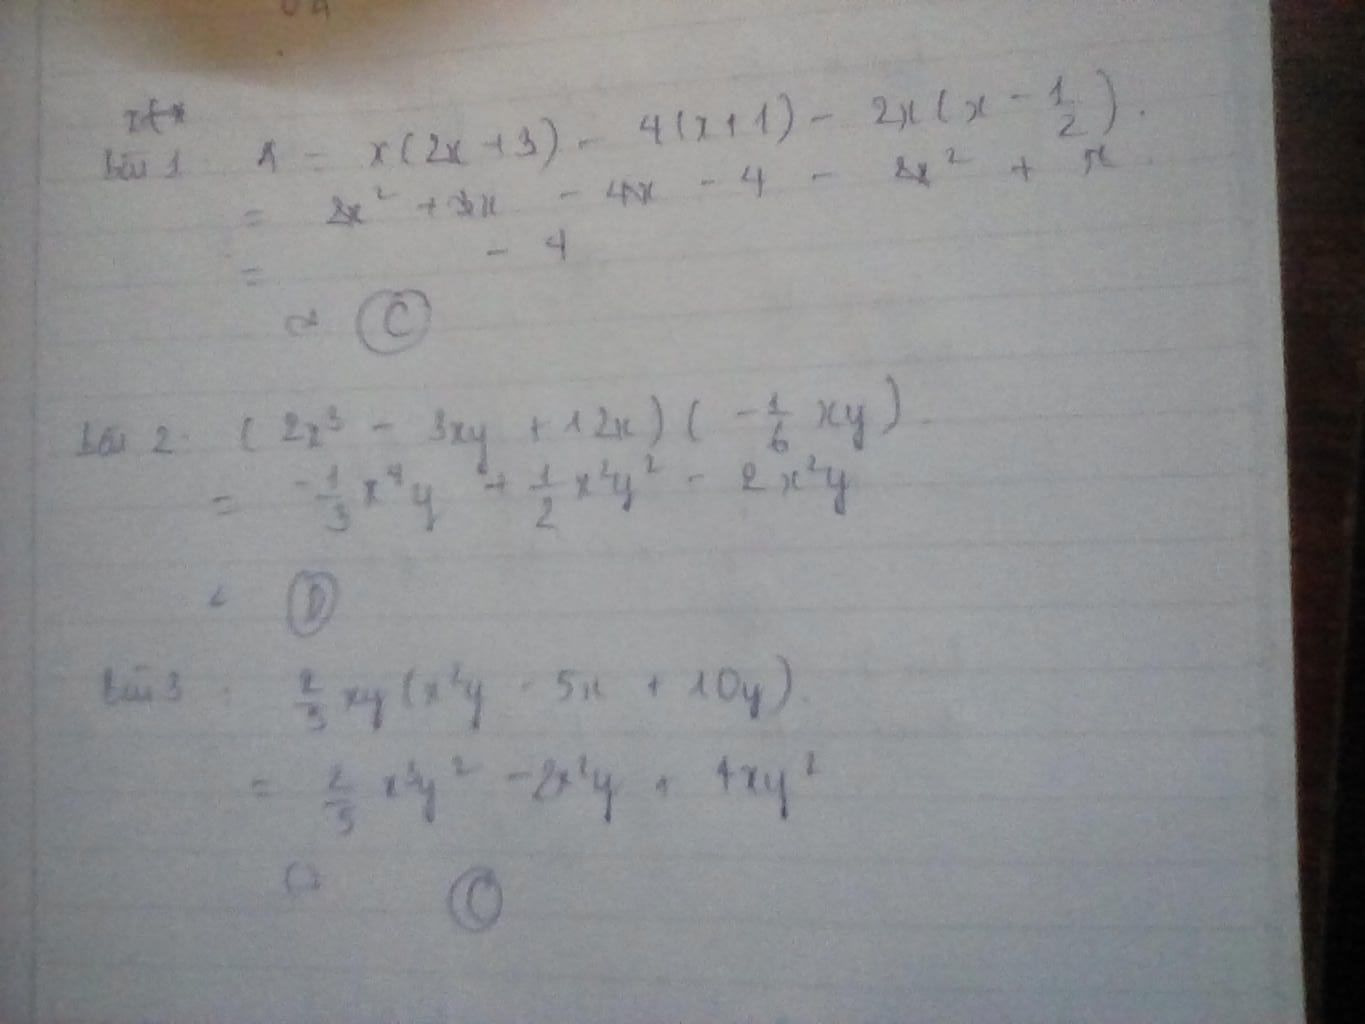 Bài 1 A = x(2x + 3) - 4(x + 1) - 2x(x - 1/2).
= 2x² + 3x - 4x - 4 - 2x² + x
= - 4
=> C
Bài 2. (2x³ - 3xy + 12x)(-1/6 xy).
= -1/3 x⁴y + 1/2 x²y² - 2x²y
D
Bài 3. xy(x²y - 5x + 10y).
= x³y² - 2x²y + 4xy²
C